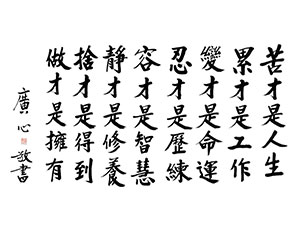 苦才是人生
累才是工作
變才是命運
忍才是歷練
容才是智慧
靜才是修養
捨才是得到
做才是擁有
廣心敬書